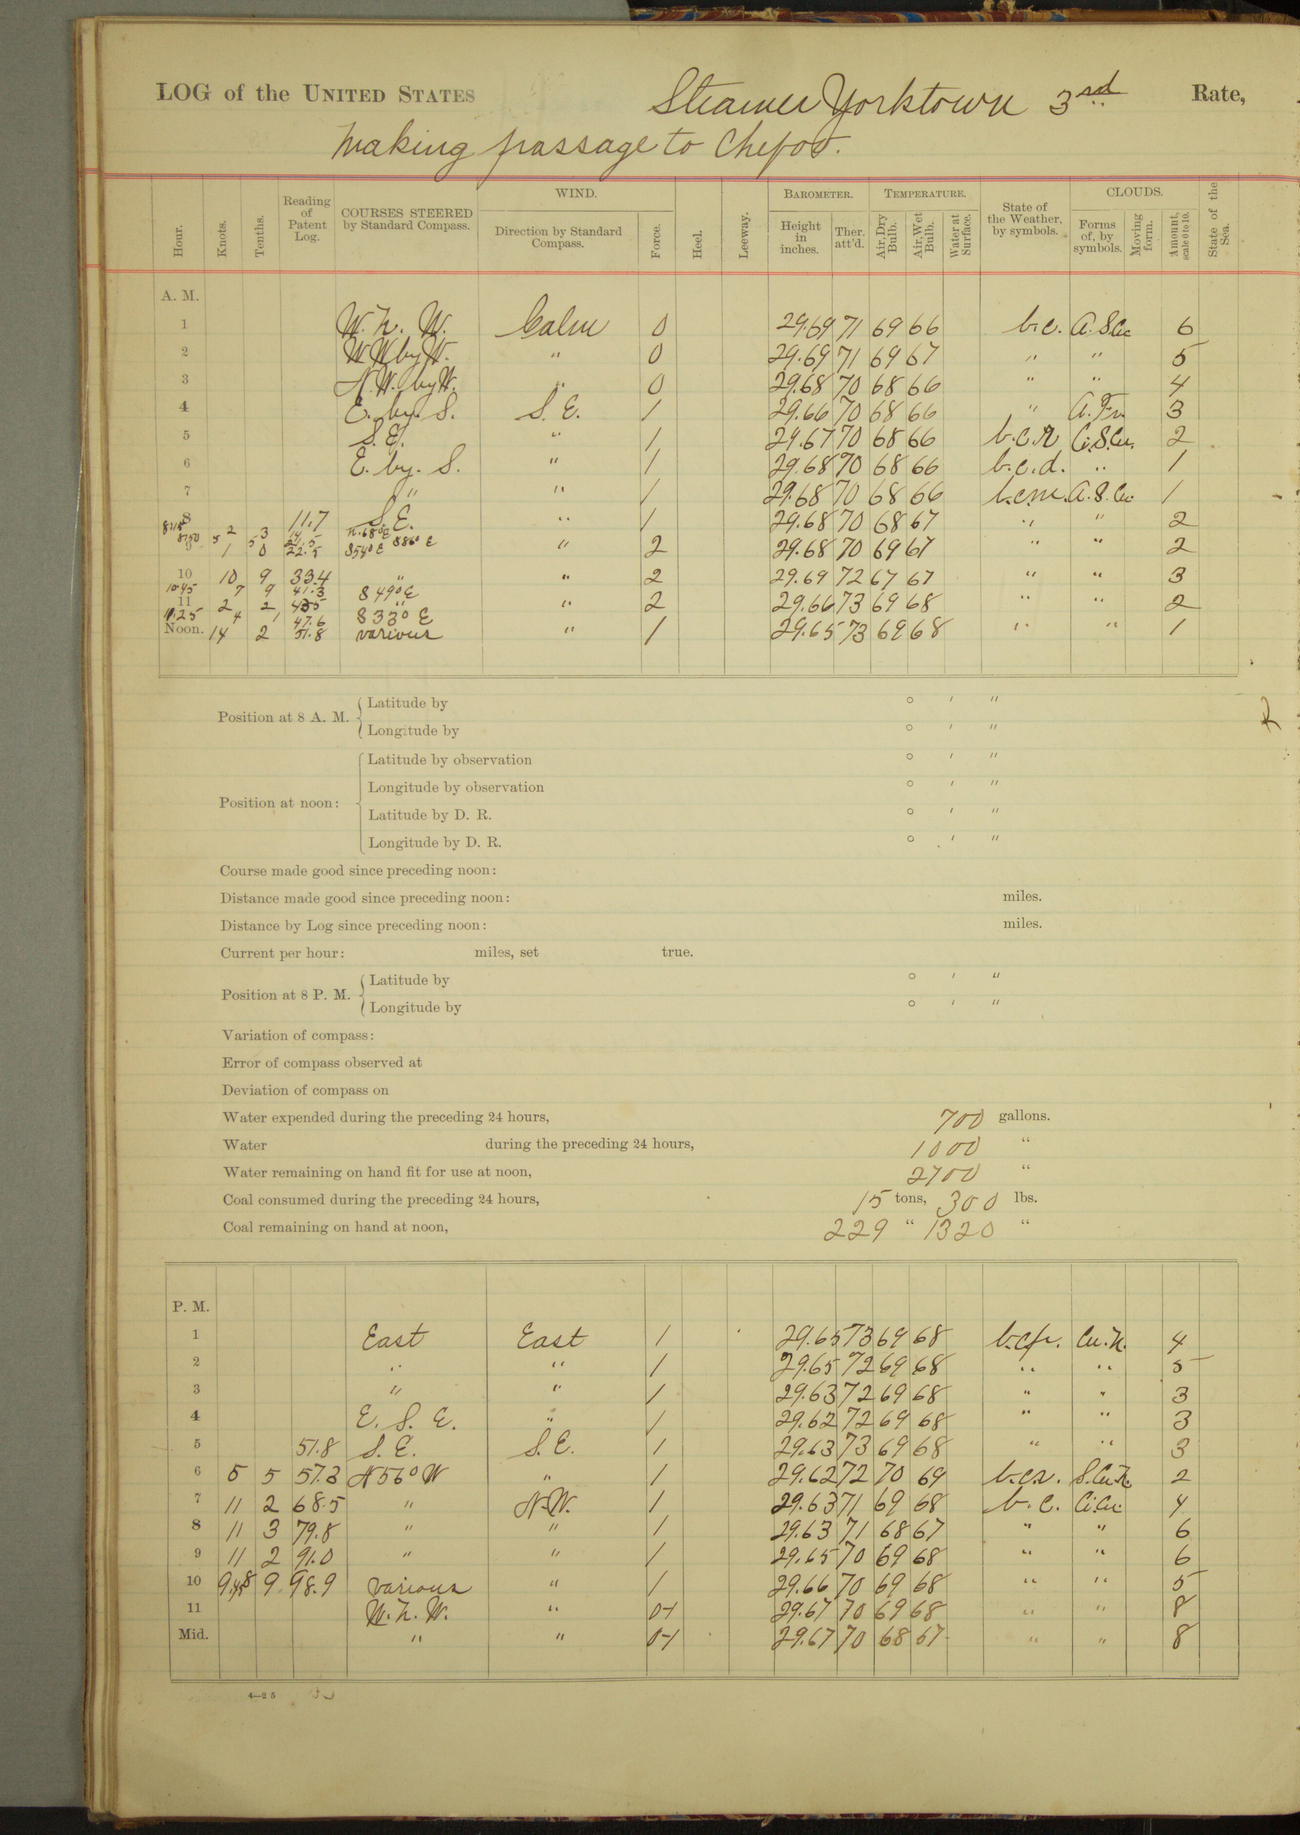 LOG of the UNITED STATES Steamer Yorktown 3rd Rate,
Making passage to Chefoo.
Hour. Knots. Tenths. Reading of Patent Log. COURSES STEERED by Standard Compass. WIND. Direction by Standard Compass. Force. Heel. Leeway. BAROMETER. Height in inches. Ther. att'd. TEMPERATURE. Air, Dry Bulb. Air, Wet Bulb. Water at Surface. State of the Weather, by symbols. CLOUDS. Forms of, by symbols. Moving form. Amount, scale 0 to 10. State of the Sea.
A. M.
1 W. N. W. Calm 0 29.69 71 69 66 b.c. 6
2 " 0 29.69 71 69 67 " " 5
3 N.W. by W. " 0 29.68 70 68 66 " " 4
4 E. by. S. S. E. 1 29.66 70 68 66 " 3
5 S.E. " 1 29.67 70 68 66 2
6 E. by. S. " 1 29.68 70 68 66 b.c.d. " 1
7 " " 1 29.68 70 68 66 b.c.m. 1
8 11.7 S.E. " 1 29.68 70 68 67 " " 2
9 1 0 22.5 S54°E S86°E " 2 29.68 70 69 67 " " 2
10 10 9 33.4 " " 2 29.69 72 67 67 " " 3
10.45 7 9 41.3 S 49° E
11 2 2 " " 2 29.66 73 69 68 " " 2
11.25 4 1 47.6 S 33° E
Noon. 14 2 51.8 various " 1 29.65 73 69 68 " " 1
Position at 8 A. M. Latitude by ° ′ ″
Longitude by ° ′ ″
Position at noon: Latitude by observation ° ′ ″
Longitude by observation ° ′ ″
Latitude by D. R. ° ′ ″
Longitude by D. R. ° ′ ″
Course made good since preceding noon:
Distance made good since preceding noon: miles.
Distance by Log since preceding noon: miles.
Current per hour: miles, set true.
Position at 8 P. M. Latitude by ° ′ ″
Longitude by ° ′ ″
Variation of compass:
Error of compass observed at
Deviation of compass on
Water expended during the preceding 24 hours, 700 gallons.
Water during the preceding 24 hours, 1000 "
Water remaining on hand fit for use at noon, 2700 "
Coal consumed during the preceding 24 hours, 15 tons, 300 lbs.
Coal remaining on hand at noon, 229 " 1320 "
P. M.
1 East East 1 29.65 73 69 68 Cu.N. 4
2 " " 1 29.65 72 69 68 " " 5
3 " " 1 29.63 72 69 68 " " 3
4 E. S. E. " 1 29.62 72 69 68 " " 3
5 51.8 S. E. S.E. 1 29.63 73 69 68 " " 3
6 5 5 57.3 N 56° W " 1 29.62 72 70 69 S.Cu.N. 2
7 11 2 68.5 " N.W. 1 29.63 71 69 68 b. c. Ci.Cu. 4
8 11 3 79.8 " " 1 29.63 71 68 67 " " 6
9 11 2 91.0 " " 1 29.65 70 69 68 " " 6
10 9 98.9 various " 1 29.66 70 69 68 " " 5
11 W. N. W. " 0-1 29.67 70 69 68 " " 8
Mid. " " 0-1 29.67 70 68 67 " " 8
4—25